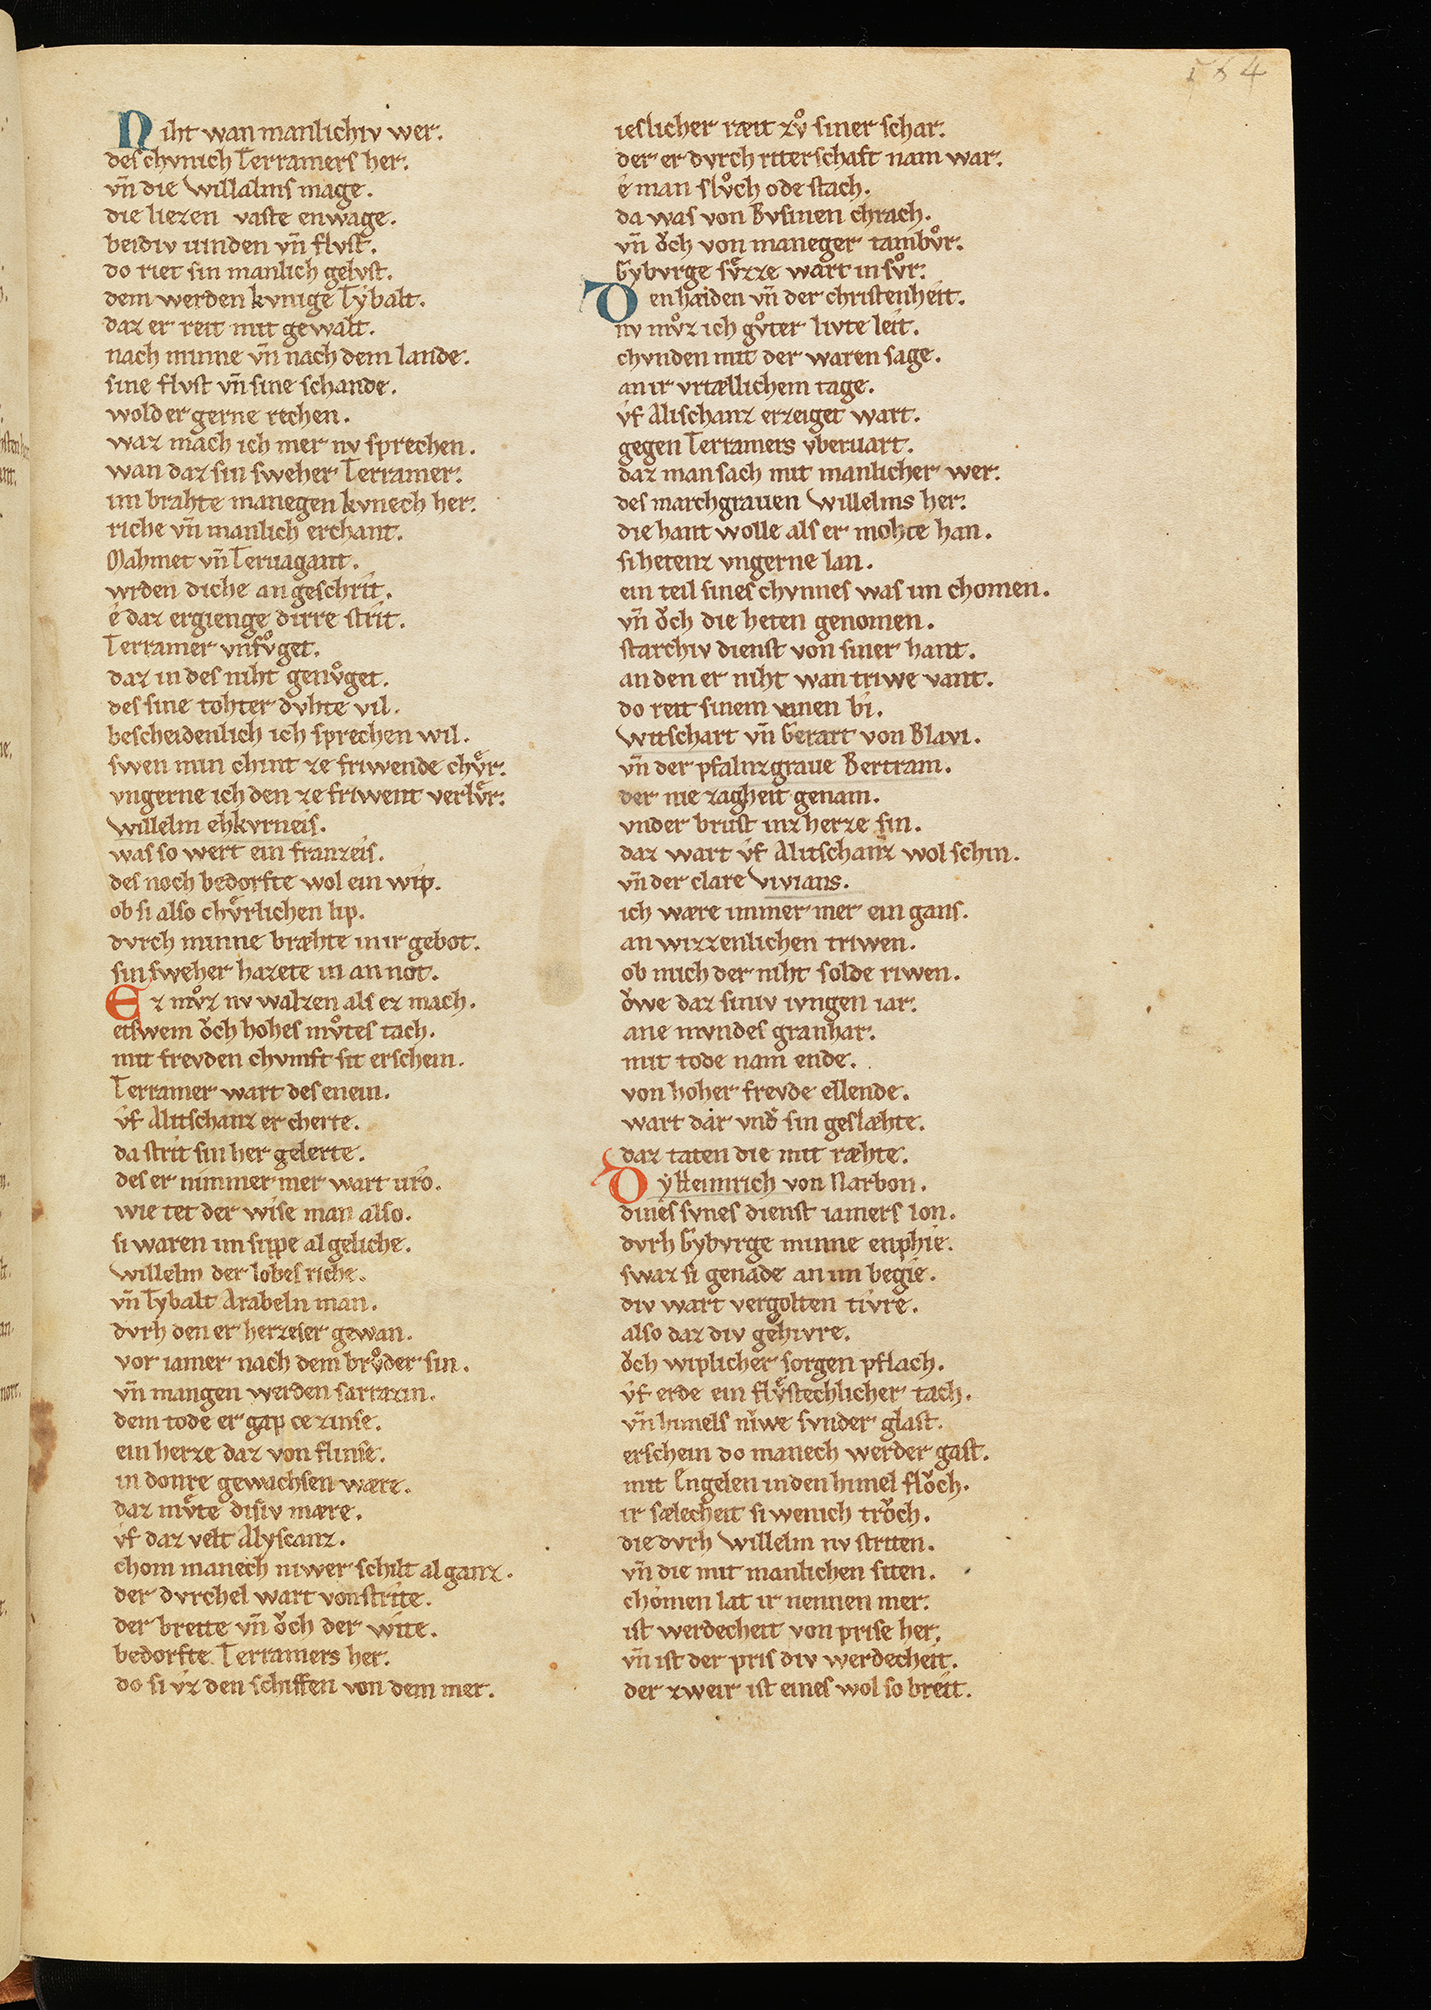 564
Niht wan manlichiv wer.
des chvnich Terramers her.
vn̄ die Willalms mage.
die liezen vaste enwage.
beidiv uinden vn̄ flvst.
do riet sin manlich gelvst.
dem werden kvnige Tybalt.
daz er reit mit gewalt.
nach minne vn̄ nach dem lande.
sine flvst vn̄ sine schande.
wold er gerne rechen.
waz mach ich mer nv sprechen.
wan daz sin sweher Terramer.
im brahte manegen kvnech her.
riche vn̄ manlich erchant.
Mahmet vn̄ Teruagant.
wrden diche an geschrit.
é daz ergienge dirre strit.
Terramer vnfvͦget.
daz in des niht genvͦget.
des sine tohter dvhte vil.
bescheidenlich ich sprechen wil.
swen min chint ze friwende chvͤr.
vngerne ich den ze friwent verlvͤr.
Willelm ehkvrneis.
was so wert ein franzeis.
des noch bedorfte wol ein wip.
ob si also chvͤrlichen lip.
dvrch minne bræhte in ir gebot.
sin sweher hazete in an not.
Ez mvͦz nv walzen als ez mach.
etswem oͮch hohes mvͦtes tach.
mit frevden chvmft sit erschein.
Terramer wart des enein.
vf Alitschanz er cherte.
da strit sin her gelerte.
des er nimmer mer wart uro.
wie tet der wise man also.
si waren im sippe al geliche.
Willelm der lobes riche.
vn̄ Tybalt Arabeln man.
dvrh den er herzeser gewan.
vor iamer nach dem brvͦder sin.
vn̄ mangen werden sarrazin.
dem tode er gap ce zinse.
ein herze daz von flinse.
in donre gewachsen wære.
daz mvͤte disiv mære.
vf daz velt Alyscanz.
chom manech niwer schilt al ganz.
der dvrchel wart von strite.
der breite vn̄ oͮch der wite.
bedorfte Terramers her.
do si vz den schiffen von dem mer.
ieslicher ræit zvͦ siner schar.
der er dvrch riterschaft nam war.
é man slvͦch ode stach.
da was von Bvsinen chrach.
vn̄ oͮch von maneger tambvͦr.
Gybvrge svͤzze wart in svͦr.
Den haiden vn̄ der christenheit.
nv mvͦz ich gvͦter livte leit.
chvnden mit der waren sage.
an ir vrtæillichem tage.
vf Alischanz erzeiget wart.
gegen Terramers vberuart.
daz man sach mit manlicher wer.
des marchgrauen Willelms her.
die hant wolle als er mohte han.
si hetenz vngerne lan.
ein teil sines chvnnes was im chomen.
vn̄ oͮch die heten genomen.
starchiv dienst von siner hant.
an den er niht wan triwe vant.
do reit sinem vanen bi.
Witschart vn̄ Gerart von Blavi.
vn̄ der pfalnzgraue Bertram.
der nie zagheit genam.
vnder brust inz herze sin.
daz wart vf Alitschanz wol schin.
vn̄ der clare Vivians.
ich wære immer mer ein gans.
an wizzenlichen triwen.
ob mich der niht solde riwen.
oͮwe daz siniv ivngen iar.
ane mvndes granhar.
mit tode nam ende.
von hoher frevde ellende.
wart dar vnd̄ sin geslæhte.
daz taten die mit ræhte.
Oy Heimrich von Narbon.
dines svnes dienst iamers lon.
dvrh Gybvrge minne enphie.
swaz si genade an im begie.
div wart vergolten tivre.
also daz div gehivre.
oͮch wiplicher sorgen pflach.
vf erde ein flvͤstechlicher tach.
vn̄ himels niwe svnder glast.
erschein do manech werder gast.
mit Engelen in den himel floͮch.
ir sælecheit si wenich troͮch.
die dvrh Willelm nv striten.
vn̄ die mit manlichen siten.
chomen lat ir nennen mer.
ist werdecheit von prise her.
vn̄ ist der pris div werdecheit.
der zweir ist eines wol so breit.